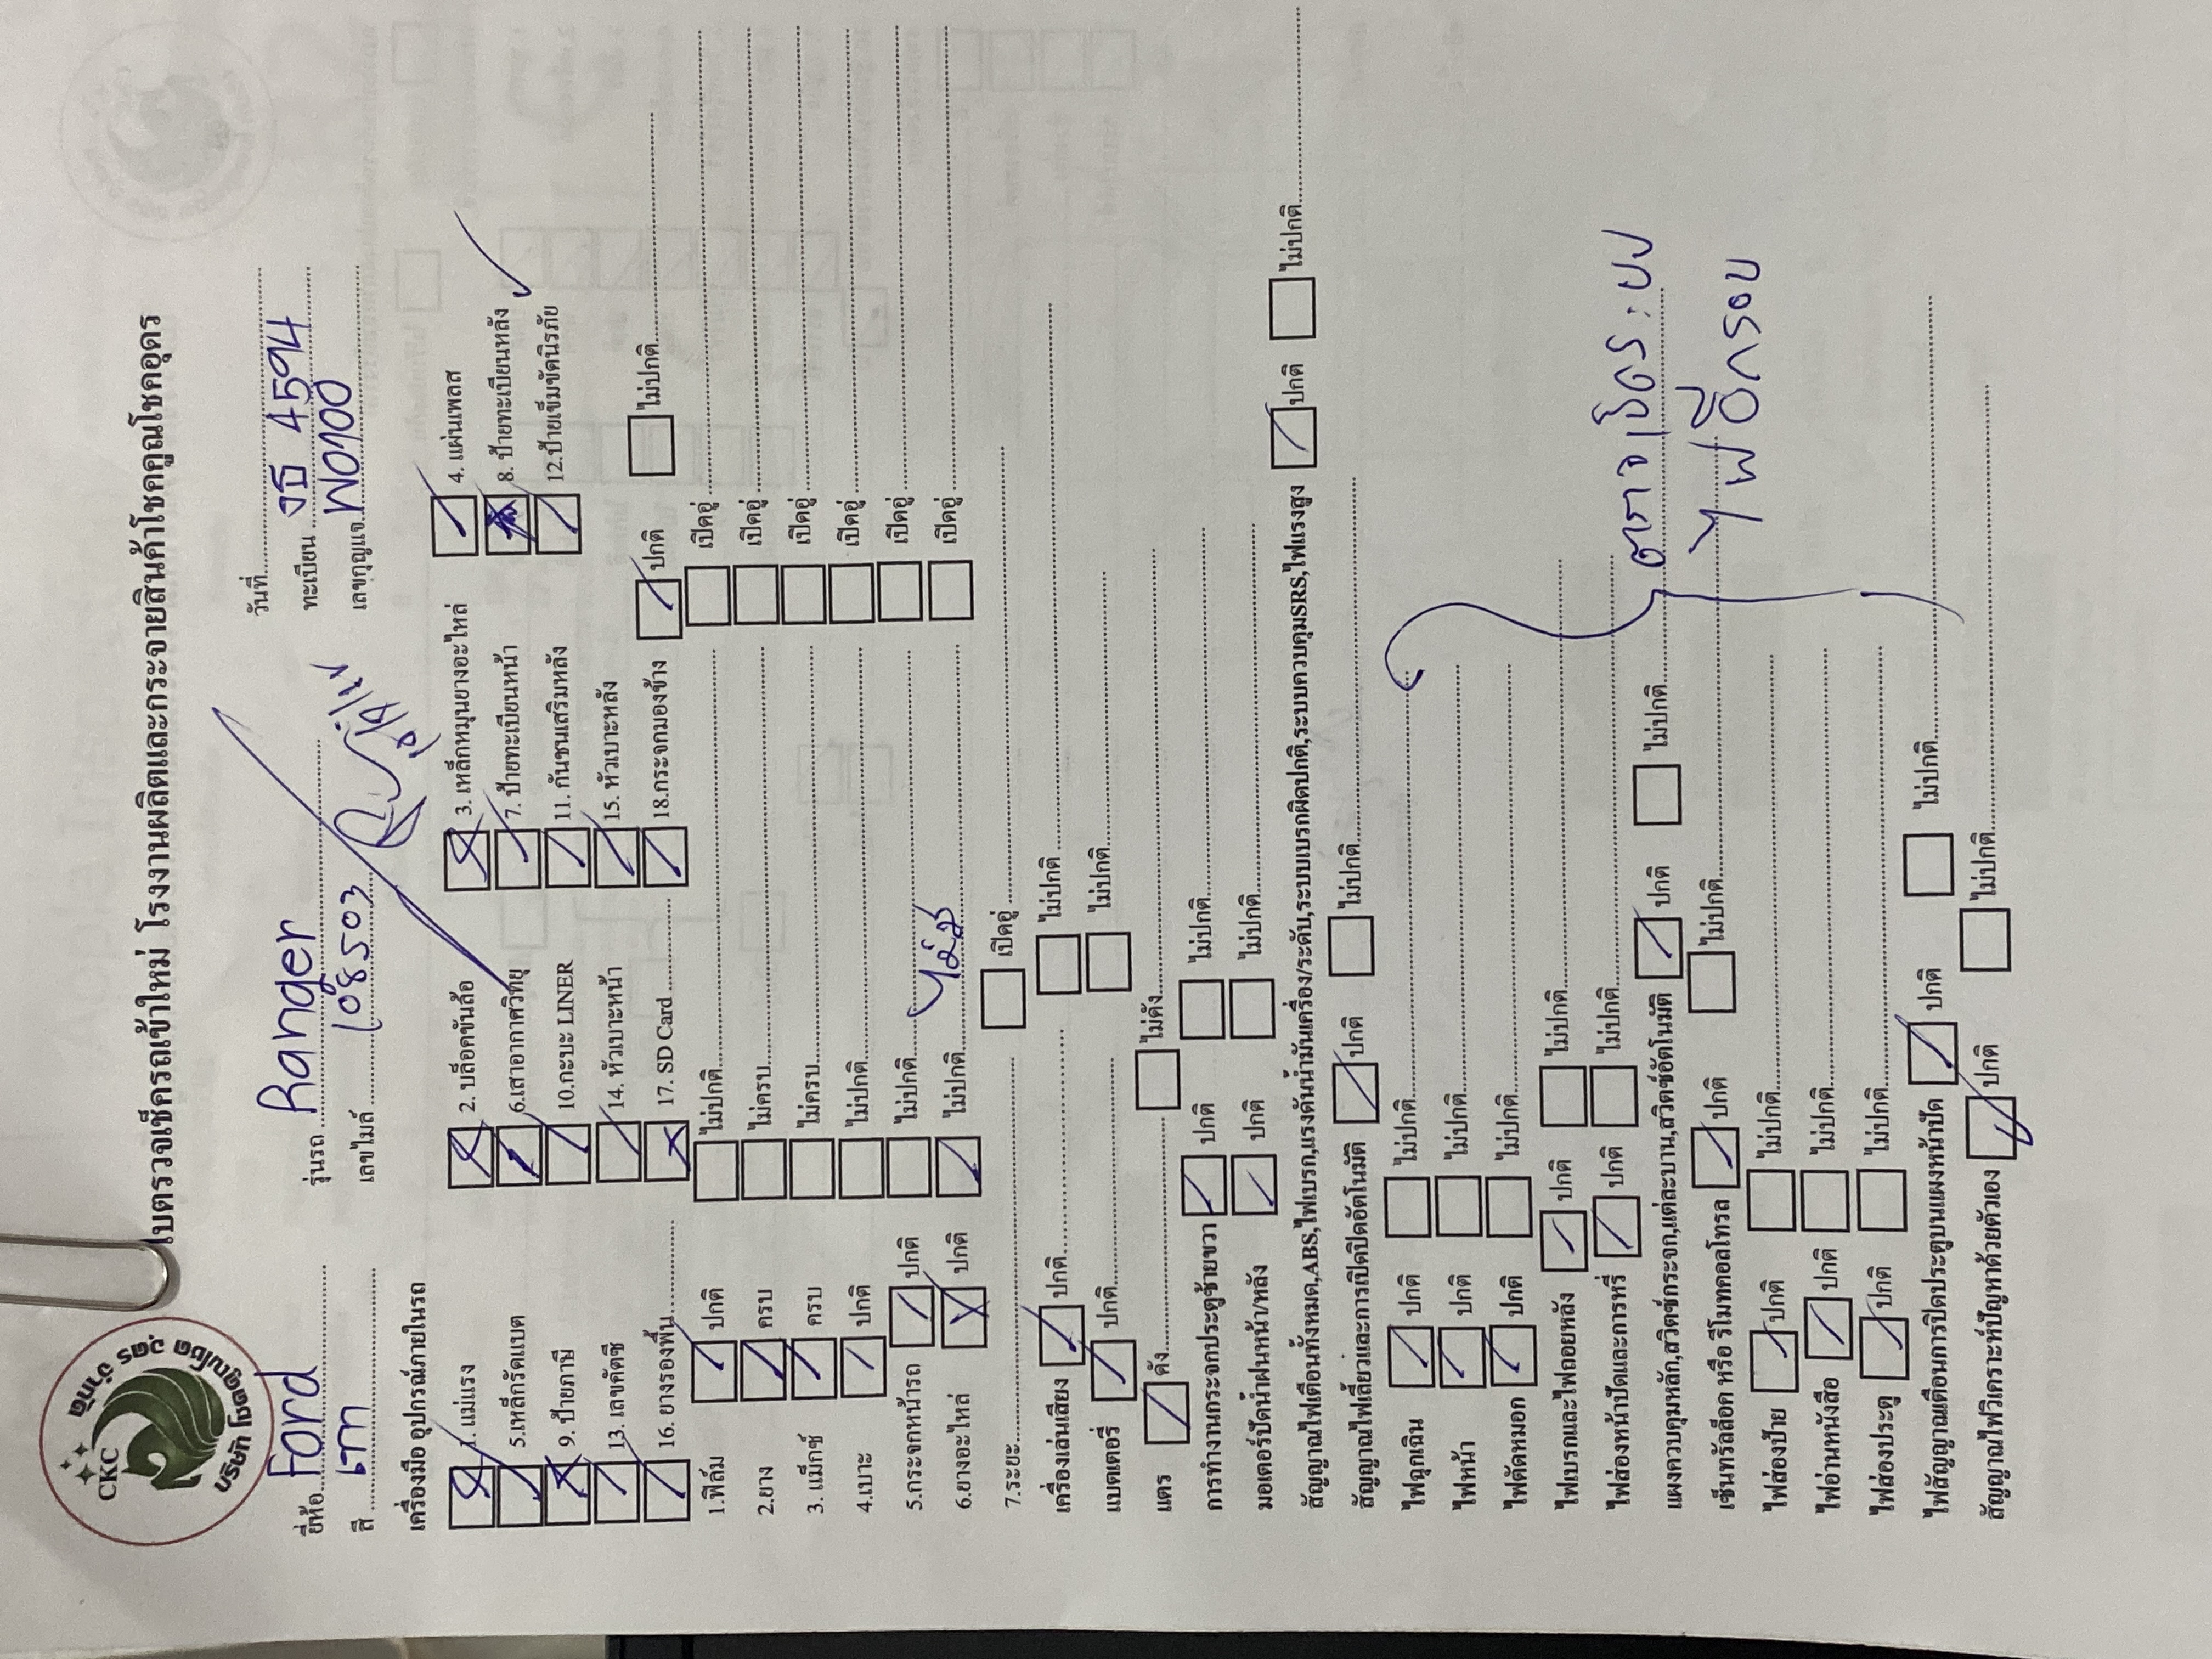 CKC
บริษัท โชคคูณโชค อุดร จำกัด
ใบตรวจเช็ครถเข้าใหม่ โรงงานผลิตและกระจายสินค้าโชคคูณโชคอุดร
วันที่
ยี่ห้อ Ford รุ่นรถ Ranger ทะเบียน 4594
สี เทา เลขไมล์ 108503 เลขกุญแจ
เครื่องมือ อุปกรณ์ภายในรถ
1. แม่แรง 2. บล็อคขันล้อ 3. เหล็กหมุนยางอะไหล่ 4. แผ่นเพลส
5.เหล็กรัดแบต 6.เสาอากาศวิทยุ 7. ป้ายทะเบียนหน้า 8. ป้ายทะเบียนหลัง
9. ป้ายภาษี 10.กะบะ LINER 11. กันชนเสริมหลัง 12.ป้ายเข็มขัดนิรภัย
13. เลขคัตซี 14. หัวเบาะหน้า 15. หัวเบาะหลัง
16. ยางรองพื้น 17. SD Card 18.กระจกมองข้าง ปกติ ไม่ปกติ
1.ฟิล์ม ปกติ ไม่ปกติ เปิดอู่
2.ยาง ครบ ไม่ครบ เปิดอู่
3. แม็กซ์ ครบ ไม่ครบ เปิดอู่
4.เบาะ ปกติ ไม่ปกติ เปิดอู่
5.กระจกหน้ารถ ปกติ ไม่ปกติ เปิดอู่
6.ยางอะไหล่ ปกติ ไม่ปกติ ไม่มี เปิดอู่
7.ระยะ เปิดอู่
เครื่องเล่นเสียง ปกติ ไม่ปกติ
แบตเตอรี่ ปกติ ไม่ปกติ
แตร ดัง ไม่ดัง
การทำงานกระจกประตูซ้ายขวา ปกติ ไม่ปกติ
มอเตอร์ปัดน้ำฝนหน้า/หลัง ปกติ ไม่ปกติ
สัญญาณไฟเตือนทั้งหมด,ABS,ไฟเบรก,แรงดันน้ำมันเครื่อง/ระดับ,ระบบเบรกผิดปกติ,ระบบควบคุมSRS,ไฟแรงสูง ปกติ ไม่ปกติ
สัญญาณไฟเลี้ยวและการเปิดปิดอัตโนมัติ ปกติ ไม่ปกติ
ไฟฉุกเฉิน ปกติ ไม่ปกติ
ไฟหน้า ปกติ ไม่ปกติ
ไฟตัดหมอก ปกติ ไม่ปกติ
ไฟเบรกและไฟถอยหลัง ปกติ ไม่ปกติ
ไฟส่องหน้าปัดและการหรี่ ปกติ ไม่ปกติ
แผงควบคุมหลัก,สวิตซ์กระจก,แต่ละบาน,สวิตซ์อัตโนมัติ ปกติ ไม่ปกติ
เซ็นทรัลล็อค หรือ รีโมทคอลโทรล ปกติ ไม่ปกติ
ไฟส่องป้าย ปกติ ไม่ปกติ
ไฟอ่านหนังสือ ปกติ ไม่ปกติ
ไฟส่องประตู ปกติ ไม่ปกติ
ไฟสัญญาณเตือนการปิดประตูบนแผงหน้าปัด ปกติ ไม่ปกติ
สัญญาณไฟวิเคราะห์ปัญหาด้วยตัวเอง ปกติ ไม่ปกติ